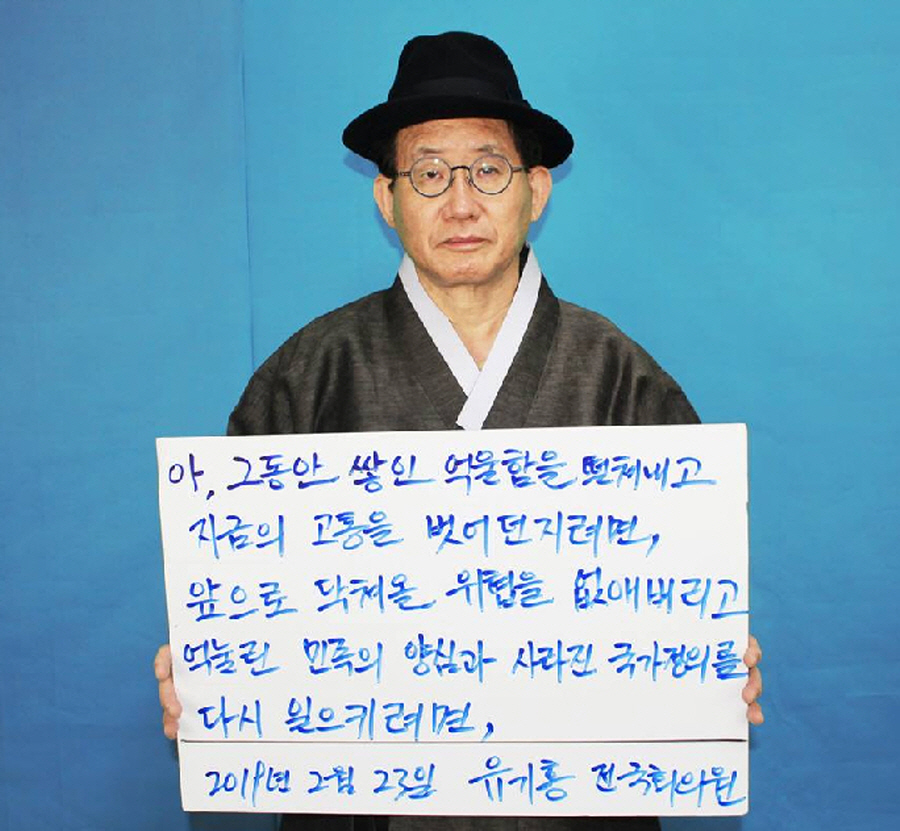 아, 그동안 쌓인 억울함을 떨쳐내고
지금의 고통을 벗어던지려면,
앞으로 닥쳐올 위협을 없애버리고
억눌린 민족의 양심과 사라진 국가정의를
다시 일으키려면,
2019년 2월 23일 유기홍 전국회의원